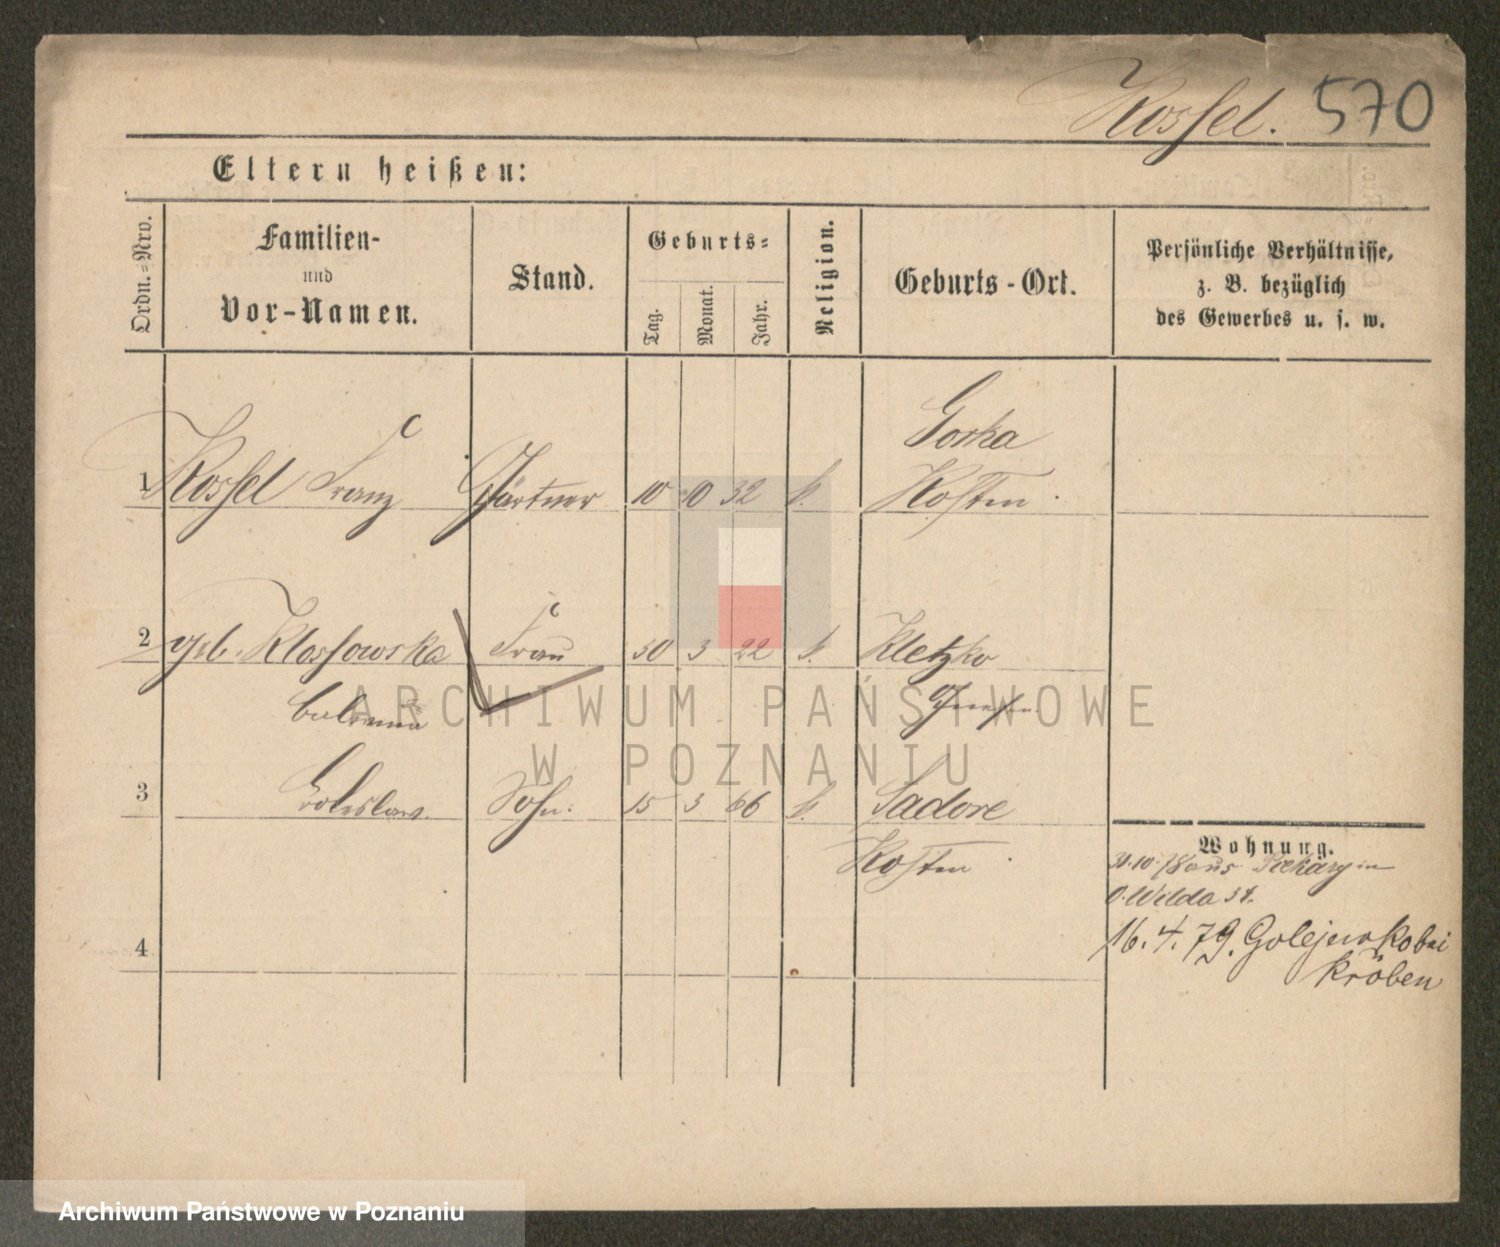 Kossel. 570
Eltern heißen:
Ordn.=Nro.
Familien-
und
Vor-Namen.
Stand.
Geburts=
Tag.
Monat.
Jahr.
Religion.
Geburts-Ort.
Persönliche Verhältnisse,
z. B. bezüglich
des Gewerbes u. s. w.
Gorka
1 Kossel Franz Gärtner 10 10 32 k. Kosten.
2 geb. Klossowska Frau 30 3 22 k. Kletzko
Gnesen
ARCHIWUM PAŃSTWOWE
W POZNANIU
3 Boleslaw. Sohn. 15 3 66 k. Sadore
Kosten.
Wohnung.
31.10.78 aus
O. Wilda 31.
4
16. 4. 79. Golejewko bei
Kröben
Archiwum Państwowe w Poznaniu